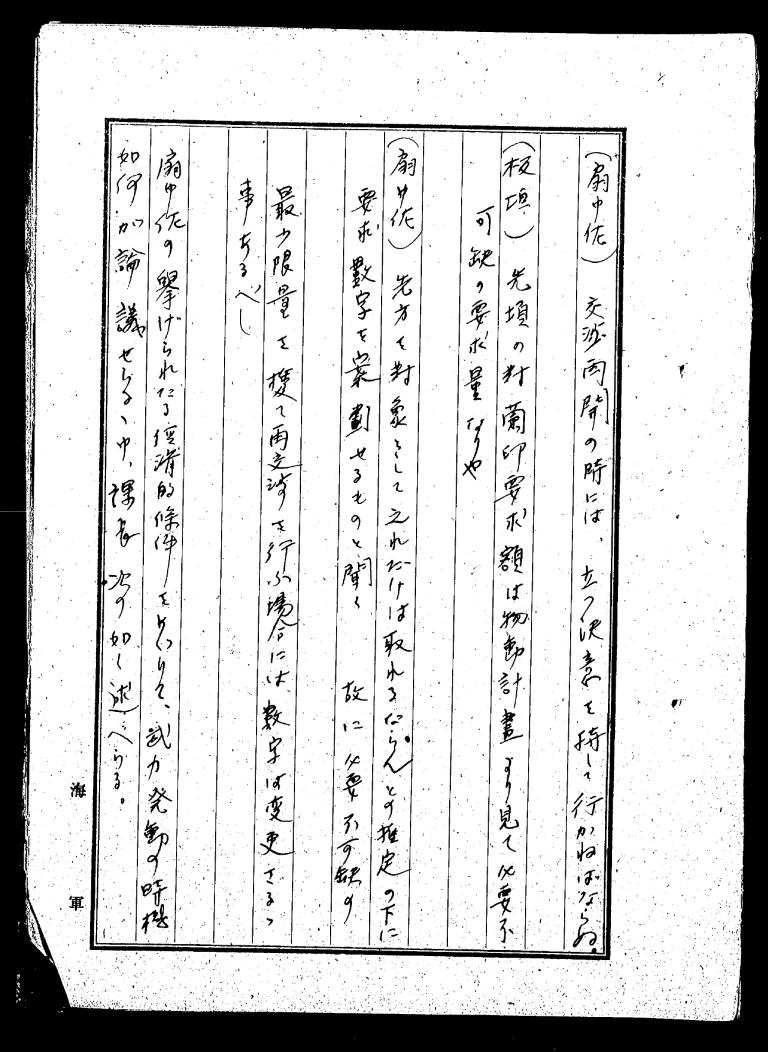 (扇中佐) 交渉再開の時には、立つ決意を持して行かねばならぬ。
(板垣) 先頃の対蘭印要求額は物動計畫より見て必要不
可缺の要求量なりや
(扇中佐) 先方を対象として之れだけは取れるならんとの推定の下に
要求數字を案劃せるものと聞く 故に必要不可缺の
最少限量を獲て再交渉を行ふ場合には數字は変更さるゝ
事あるべし
扇中佐の擧げられたる経済的條件をめぐりて、武力発動の時機
如何が論議せらるゝ中、課長次の如く述べらる。
海軍